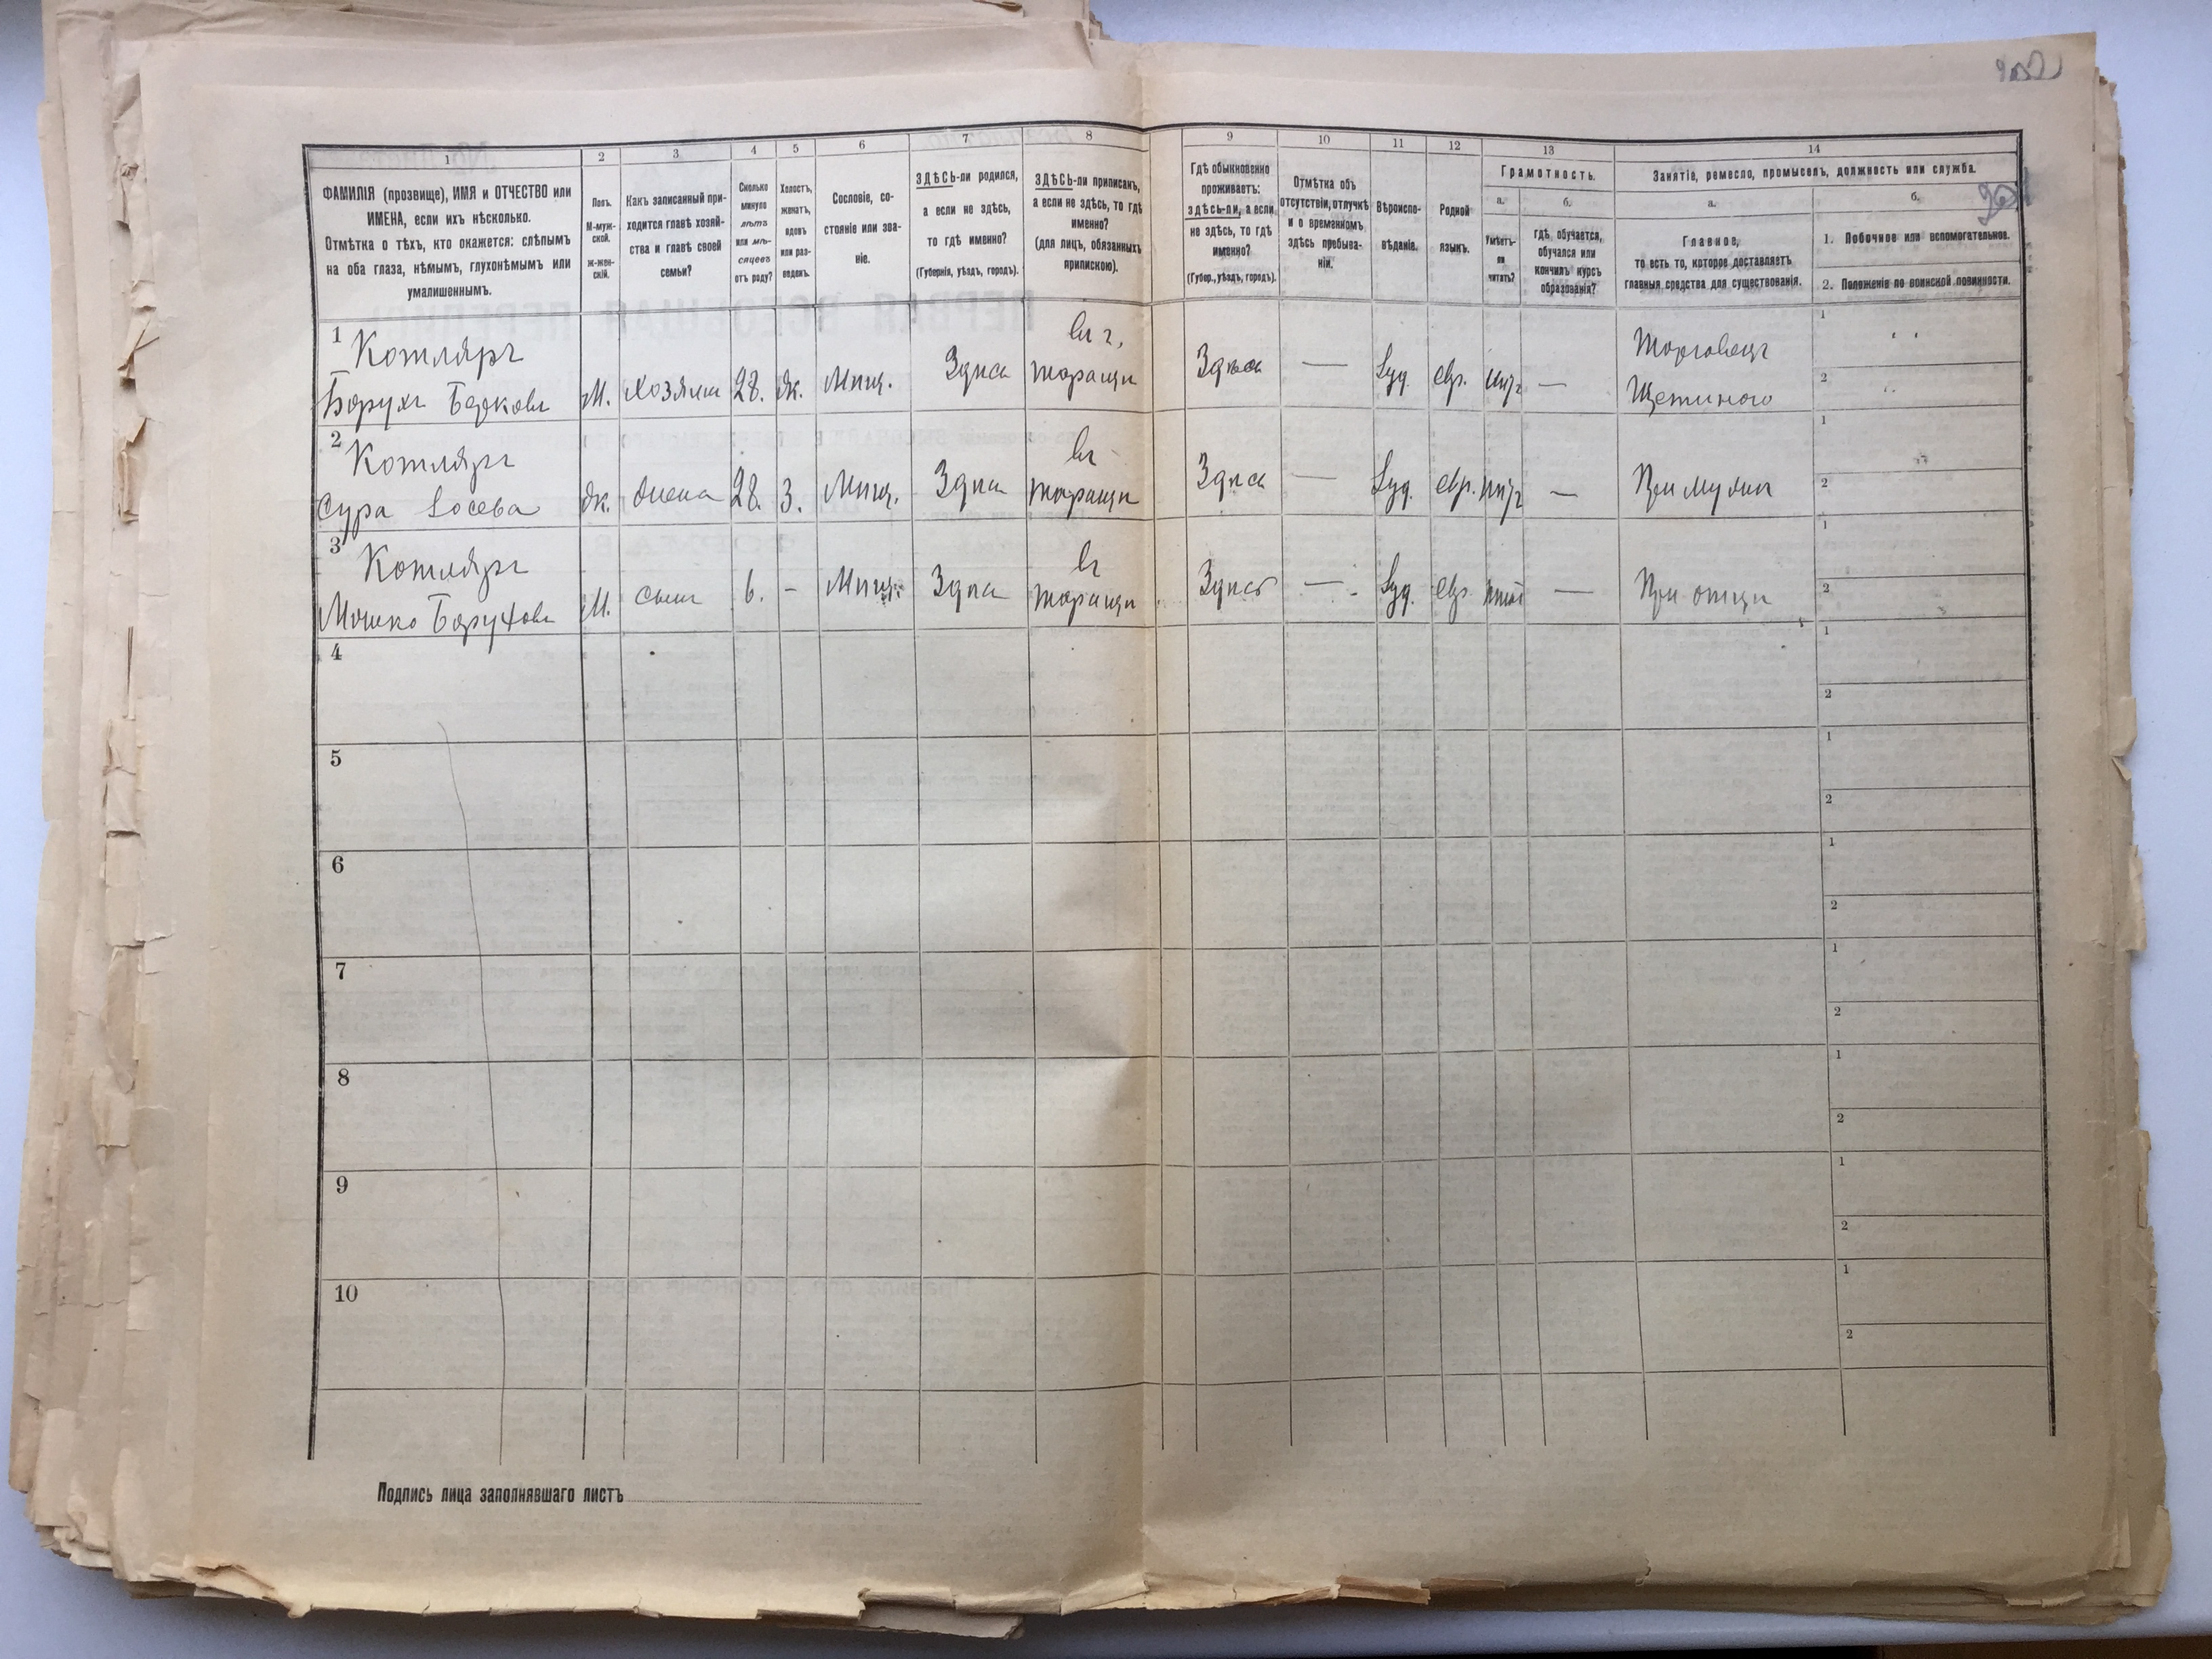 1
2
3
4
5
6
7
8
9
10
11
12
13
14
ФАМИЛІЯ (прозвище), ИМЯ и ОТЧЕСТВО или
ИМЕНА, если ихъ нѣсколько.
Отмѣтка о тѣхъ, кто окажется: слѣпымъ
на оба глаза, нѣмымъ, глухонѣмымъ или
умалишеннымъ.
Полъ.
М-муж-
ской.
ж-жен-
скій.
Какъ записанный при-
ходится главѣ хозяй-
ства и главѣ своей
семьи?
Сколько
минуло
лѣтъ
или мѣ-
сяцевъ
отъ роду?
Холостъ,
женатъ,
вдовъ
или раз-
веденъ.
Сословіе, со-
стояніе или зва-
ніе.
ЗДѢСЬ-ли родился,
а если не здѣсь,
то гдѣ именно?
(Губернія, уѣздъ, городъ).
ЗДѢСЬ-ли приписанъ,
а если не здѣсь, то гдѣ
именно?
(для лицъ, обязанныхъ
припискою).
Гдѣ обыкновенно
проживаетъ:
здѣсь-ли, а если
не здѣсь, то гдѣ
именно?
(Губер., уѣздъ, городъ).
Отмѣтка объ
отсутствіи, отлучкѣ
и о временномъ
здѣсь пребыва-
ніи.
Вѣроиспо-
вѣданіе.
Родной
языкъ.
Грамотность.
а.
Умѣетъ-
ли
читать?
б.
гдѣ обучается,
обучался или
кончилъ курсъ
образованія?
Занятіе, ремесло, промыселъ, должность или служба.
а.
Главное,
то есть то, которое доставляетъ
главныя средства для существованія.
б.
1. Побочное или вспомогательное.
2. Положеніе по воинской повинности.
1 Котляръ
Борухъ Берковъ
М. хозяинъ 28. ж. Мѣщ. Здѣсь
въ г.
таращи
Здѣсь — Іуд. евр. —
Торговецъ
Щетиною
1
2
2 Котляръ
Сура Іосева
ж. жена 28. З. Мѣщ. Здѣсь
въ
таращи
Здѣсь — Іуд. евр. — При мужѣ
1
2
3 Котляръ
Мошко Боруховъ
М. сынъ 6. - Мѣщ. Здѣсь
въ
таращи
Здѣсь — Іуд. евр. — При отцѣ
1
2
4
1
2
5
1
2
6
1
2
7
1
2
8
1
2
9
1
2
10
1
2
Подпись лица заполнявшаго листъ